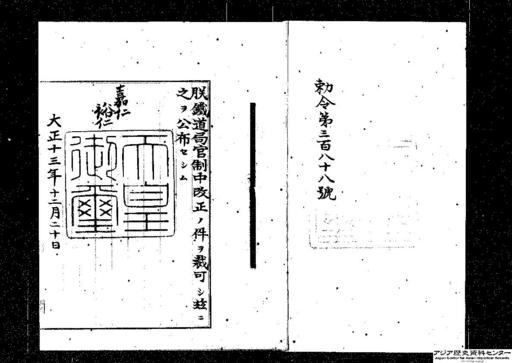 勅令第三百八十八號
朕鐵道局官制中改正ノ件ヲ裁可シ玆ニ
之ヲ公布セシム
嘉仁
裕仁
天皇
御璽
大正十三年十二月二十日
アジア歴史資料センター
Japan Center for Asian Historical Records